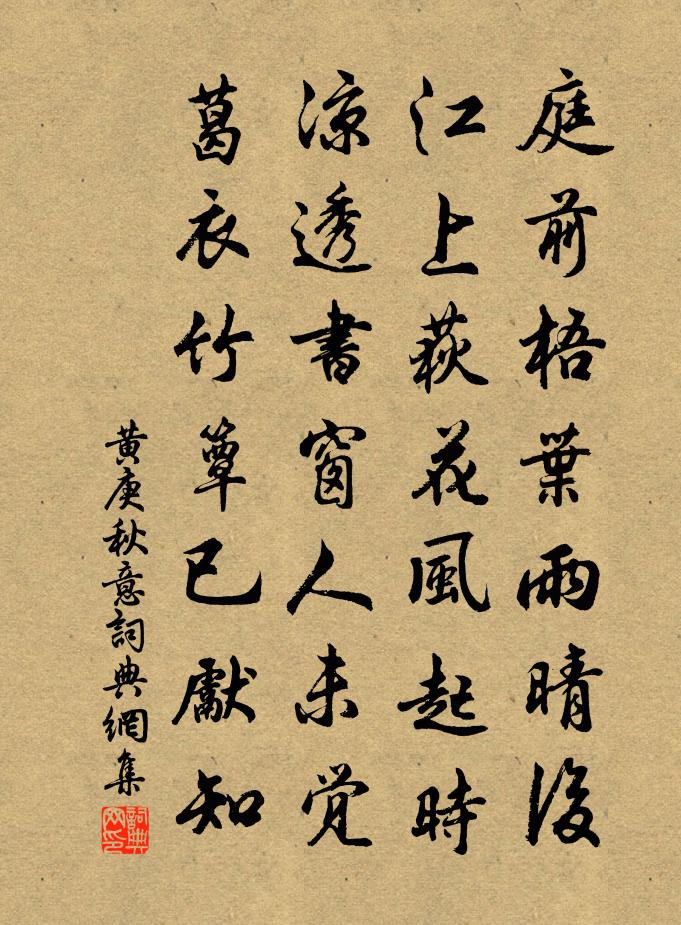 庭前梧葉雨晴後
江上荻花風起時
涼透書窗人未觉
葛衣竹簟已獻知
黄庚秋意詞典網集
詞典網印